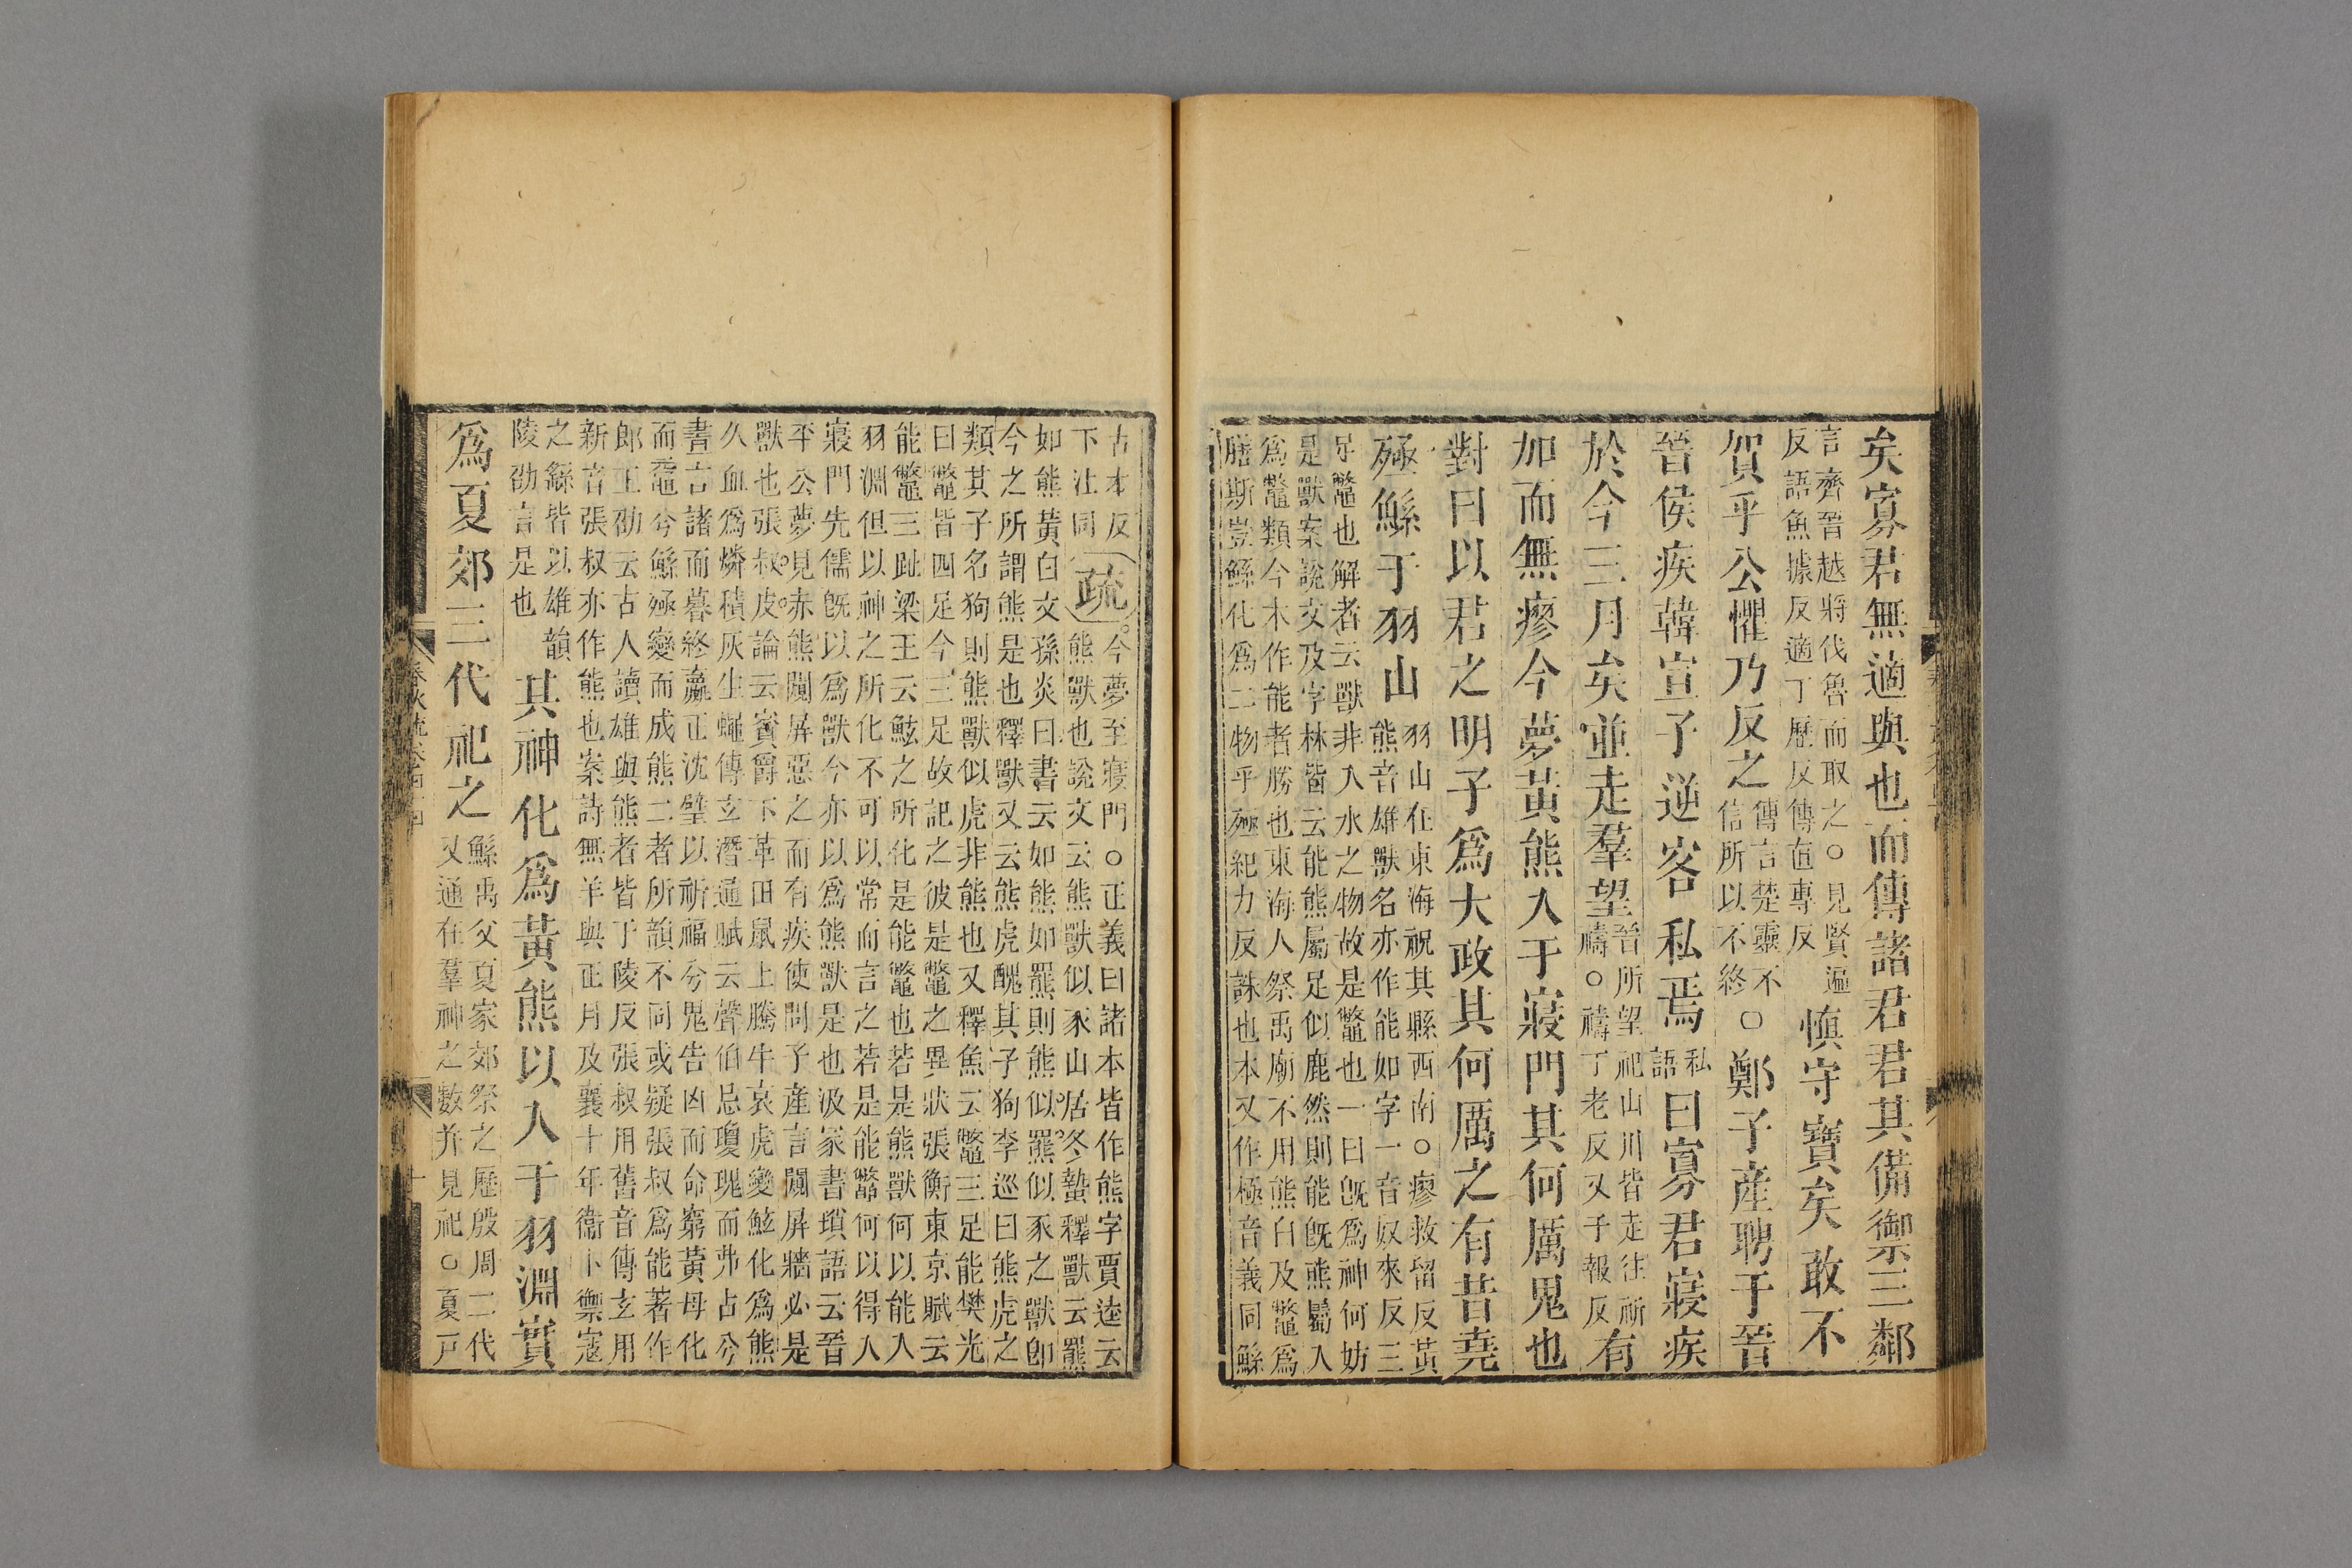 矣寡君無適與也而傳諸君君其備禦三鄰
言齊晉越將伐魯而取之○見賢遍
反語魚據反適丁歷反傳直專反
愼守寶矣敢不
賀乎公懼乃反之
傳言楚靈不
信所以不終○
鄭子産聘于晉
晉侯疾韓宣子逆客私焉
私
語
曰寡君寢疾
於今三月矣並走羣望
晉所望祀山川皆走往祈
禱○禱丁老反又子報反
有
加而無瘳今夢黃熊入于寢門其何厲鬼也
對曰以君之明子爲大政其何厲之有昔堯
殛鯀于羽山
羽山在東海祝其縣西南○瘳敕留反黃
熊音雄獸名亦作能如字一音奴來反三
足鼈也解者云獸非入水之物故是鼈也一曰旣爲神何妨
是獸案說文及字林皆云能熊屬足似鹿然則能旣熊屬又
爲鼈類今本作能者勝也東海人祭禹廟不用熊白及鼈爲
膳斯豈鯀化爲二物乎殛紀力反誅也本又作極音義同鯀
古本反
下注同
疏
今夢至寢門○正義曰諸本皆作熊字賈逵云
熊獸也說文云熊獸似豕山居冬蟄釋獸云羆
如熊黃白文孫炎曰書云如熊如羆則熊似羆似豕之獸卽
今之所謂熊是也釋獸又云熊虎醜其子狗李巡曰熊虎之
類其子名狗則熊獸似虎非熊也又釋魚云鼈三足能樊光
曰鼈皆四足今三足故記之彼是鼈之異狀張衡東京賦云
能鼈三趾梁王云鮌之所化是能鼈也若是熊獸何以能入
羽淵但以神之所化不可以常而言之若是能鼈何以得入
寢門先儒旣以爲獸今亦以爲熊獸是也汲冢書瑣語云晉
平公夢見赤熊闚屏惡之而有疾使問子産言闚屏牆必是
獸也張叔皮論云賓爵下革田鼠上騰牛哀虎變鮌化爲熊
久血爲燐積灰生蠅傳玄潛通賦云聲伯忌瓊瑰而弗占兮
晝言諸而暮終嬴正沈璧以祈福兮鬼告凶而命窮黃母化
而黿兮鯀殛變而成熊二者所韻不同或疑張叔爲能著作
郎王劭云古人讀雄與熊者皆于陵反張叔用舊音傳玄用
新音張叔亦作熊也案詩無羊與正月及襄十年衞卜禦寇
之繇皆以雄韻
陵劭言是也
其神化爲黃熊以入于羽淵實
爲夏郊三代祀之
鯀禹父夏家郊祭之歷殷周二代
又通在羣神之數并見祀○夏戸
春秋疏卷四十四